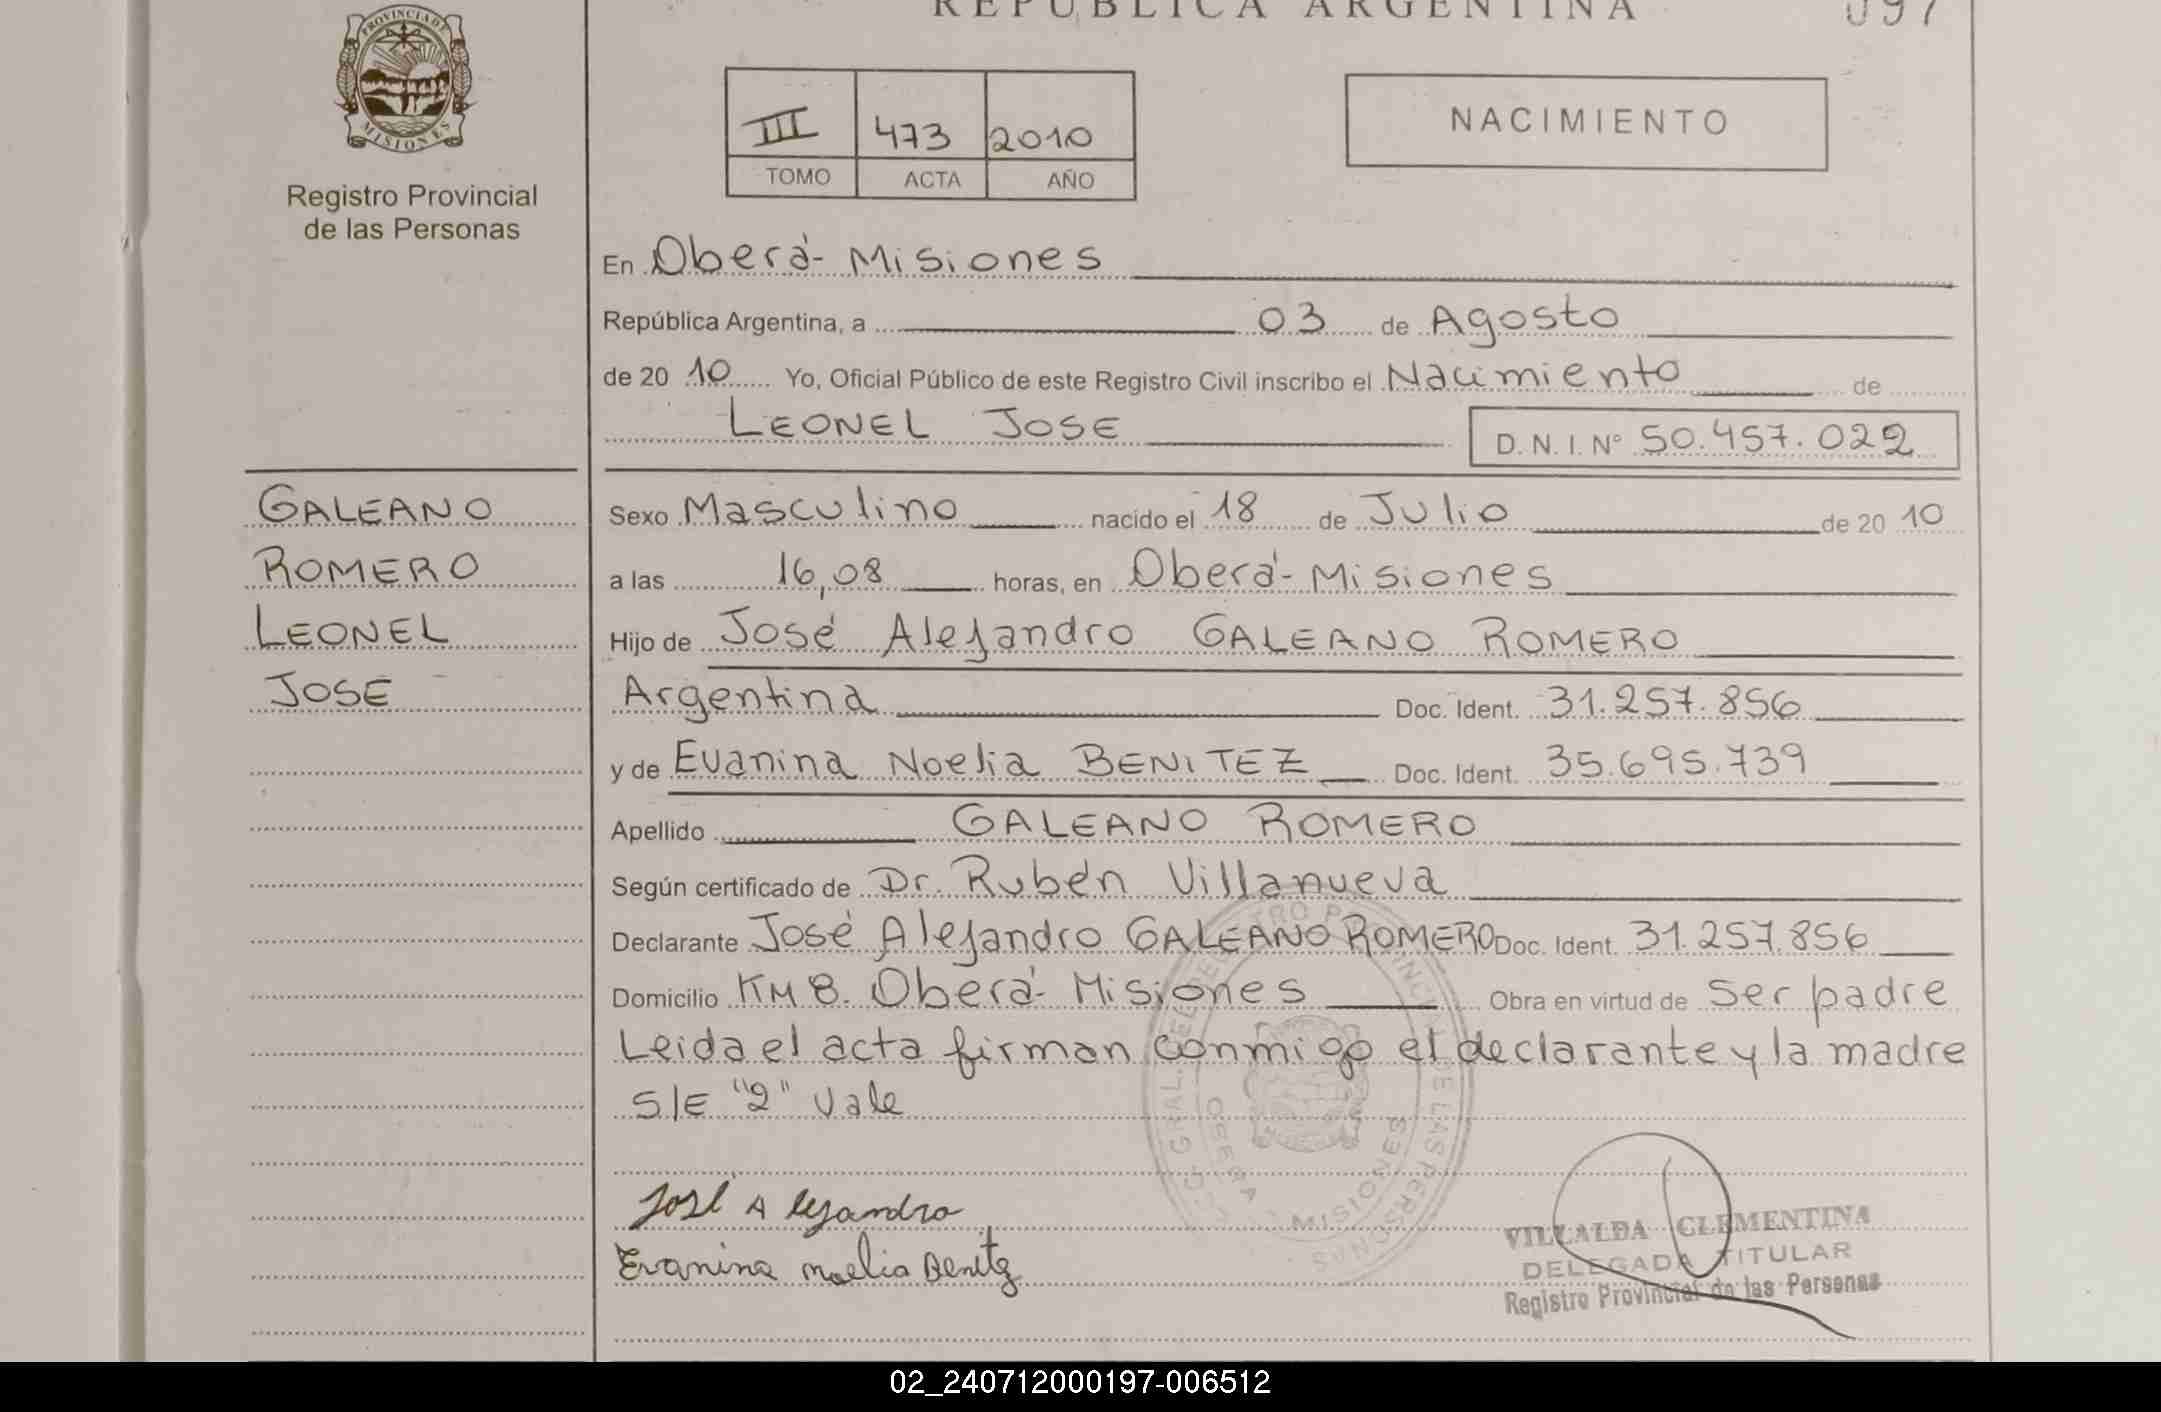 REPUBLICA ARGENTINA
097
PROVINCIA DE
MISIONES
Registro Provincial
de las Personas
III 473 2010
TOMO ACTA AÑO
NACIMIENTO
En Oberá- Misiones
República Argentina, a 03 de Agosto
de 20 10 Yo, Oficial Público de este Registro Civil inscribo el Nacimiento de
LEONEL JOSE
D. N. I. Nº 50.457.022
GALEANO
ROMERO
LEONEL
JOSE
Sexo Masculino nacido el 18 de Julio de 20 10
a las 16,08 horas, en Oberá- Misiones
Hijo de José Alejandro GALEANO ROMERO
Argentina Doc. Ident. 31.257.856
y de Evanina Noelia BENITEZ Doc. Ident. 35.695.739
Apellido GALEANO ROMERO
Según certificado de Dr. Rubén Villanueva
Declarante José Alejandro GALEANO ROMERO Doc. Ident. 31.257.856
Domicilio KM 8. Oberá- Misiones Obra en virtud de Ser padre
Leida el acta firman conmigo el declarante y la madre
S/E "2" Vale
José Alejandro
Evanina Noelia Benitz
MISIONES
VILLALBA CLEMENTINA
DELEGADA TITULAR
Registro Provincial de las Personas
02_240712000197-006512